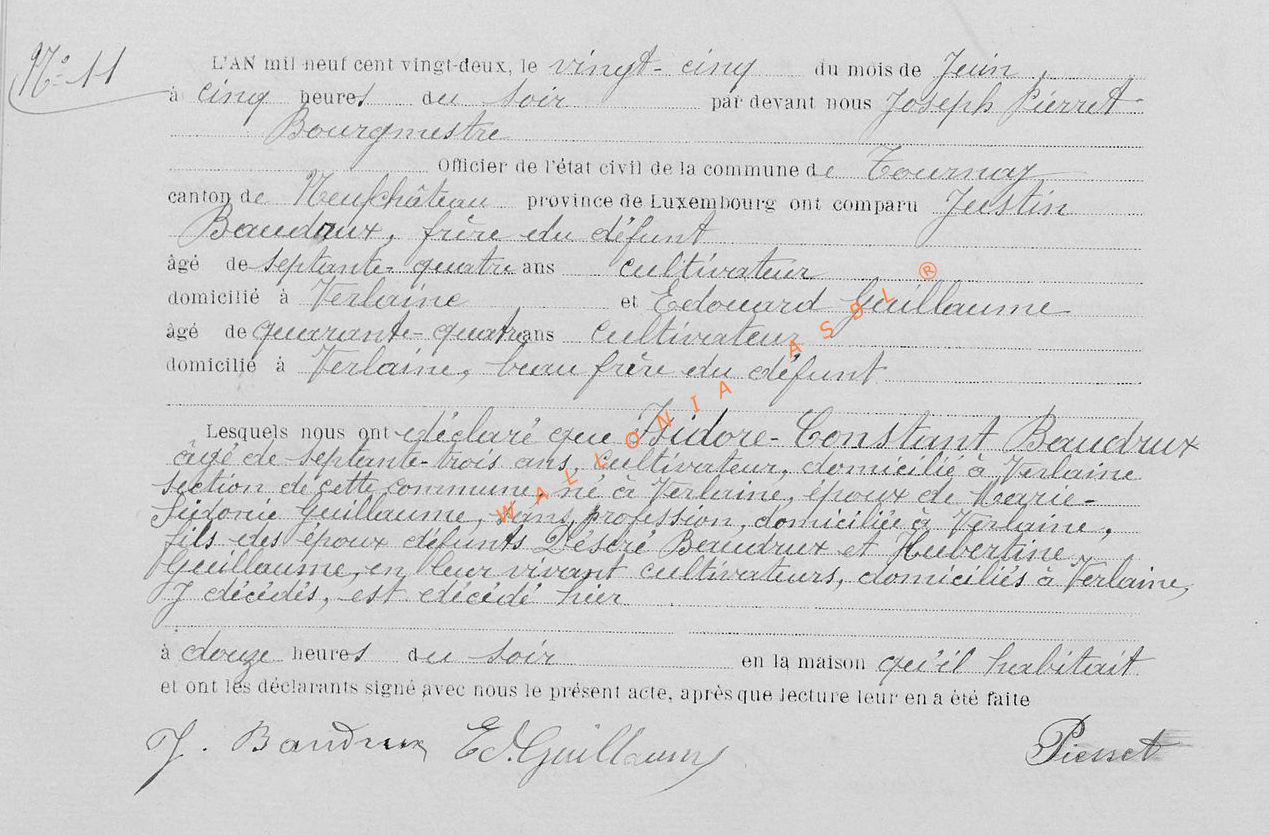 N° 11
L'AN mil neuf cent vingt-deux, le vingt-cinq du mois de Juin,
à cinq heures du soir par devant nous Joseph Pierret
Bourgmestre
Officier de l'état civil de la commune de Tournay
canton de Neufchâteau province de Luxembourg ont comparu Justin
Baudrux, frère du défunt
âgé de septante-quatre ans cultivateur
domicilié à Verlaine et Edouard Guillaume
âgé de quarante-quatre ans cultivateur
domicilié à Verlaine, beau frère du défunt
Lesquels nous ont déclaré que Isidore-Constant Baudrux
âgé de septante-trois ans, cultivateur, domicilié à Verlaine
section de cette commune, né à Verlaine, époux de Marie-
Sidonie Guillaume, sans profession, domiciliée à Verlaine,
fils des époux défunts Désiré Baudrux et Hubertine
Guillaume, en leur vivant cultivateurs, domiciliés à Verlaine,
y décédés, est décédé hier
à douze heures du soir en la maison qu'il habitait
et ont les déclarants signé avec nous le présent acte, après que lecture leur en a été faite
J. Baudrux Ed. Guillaume Pierret
WALLONIA ASBL ®